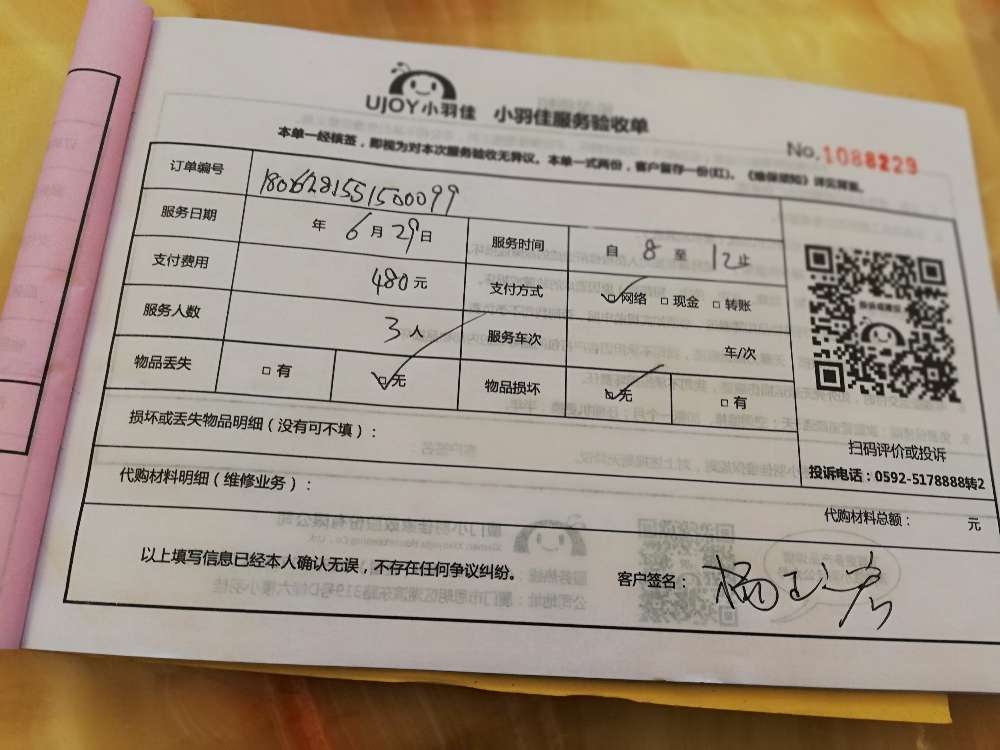 UJOY小羽佳 小羽佳服务验收单
No.1088229
本单一经核签，即视为对本次服务验收无异议。本单一式两份，客户留存一份(红)。《维保须知》详见背面。
订单编号 180628155150099
服务日期 年 6 月 29 日 服务时间 自 8 至 12 止
支付费用 480 元 支付方式 网络 现金 转账
服务人数 3 人 服务车次 车/次
物品丢失 有 无 物品损坏 无 有
扫码评价或投诉
投诉电话：0592-5178888转2
损坏或丢失物品明细（没有可不填）：
代购材料明细（维修业务）：
代购材料总额： 元
以上填写信息已经本人确认无误，不存在任何争议纠纷。 客户签名：